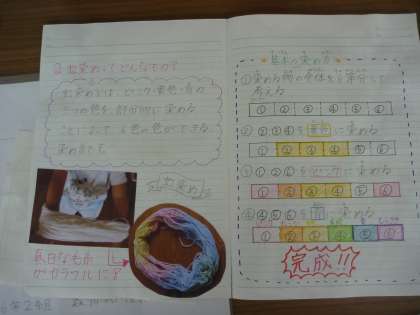 虹染めってどんなもの？
虹染めでは、ピンク・黄色・青の
三つの色を、部分的に染める
ことによって、6色の色ができる
染め方です。
虹染め
真白な毛糸
がカラフルに!!
基本の染め方
①染める物の全体を6等分して
考える
① ② ③ ④ ⑤ ⑥
②②③④を黄色に染める
① ② ③ ④ ⑤ ⑥
③①②⑥をピンクに染める
① ② ③ ④ ⑤ ⑥
④④⑤⑥を青に染める
① ② ③ ④ ⑤ ⑥
完成!!